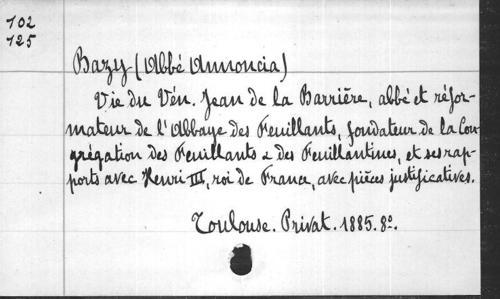 102
125
Bazy (Abbé Annoncia)
Vie du Vén. Jean de la Barrière, abbé et réfor-
mateur de l'Abbaye des Feuillants, fondateur de la Con
grégation des Feuillants & des Feuillantines, et ses rap-
ports avec Henri III, roi de France, avec pièces justificatives.
Toulouse. Privat. 1885. 8o.